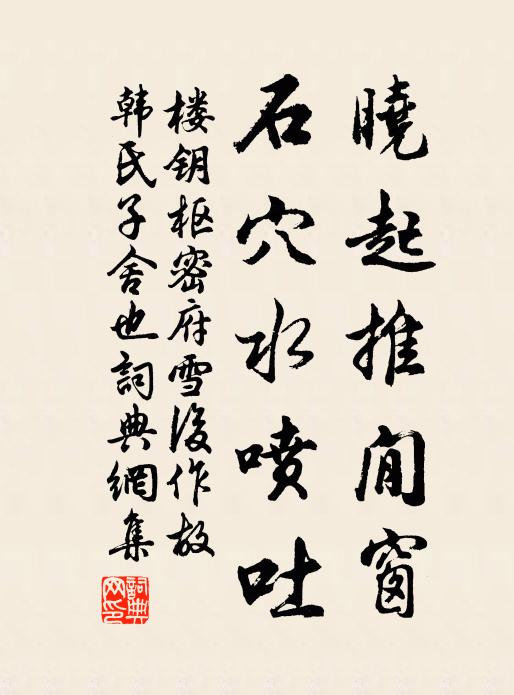 曉起推閒窗
石穴水噴吐
楼钥枢密府雪後作故
韩氏子舍也詞典網集